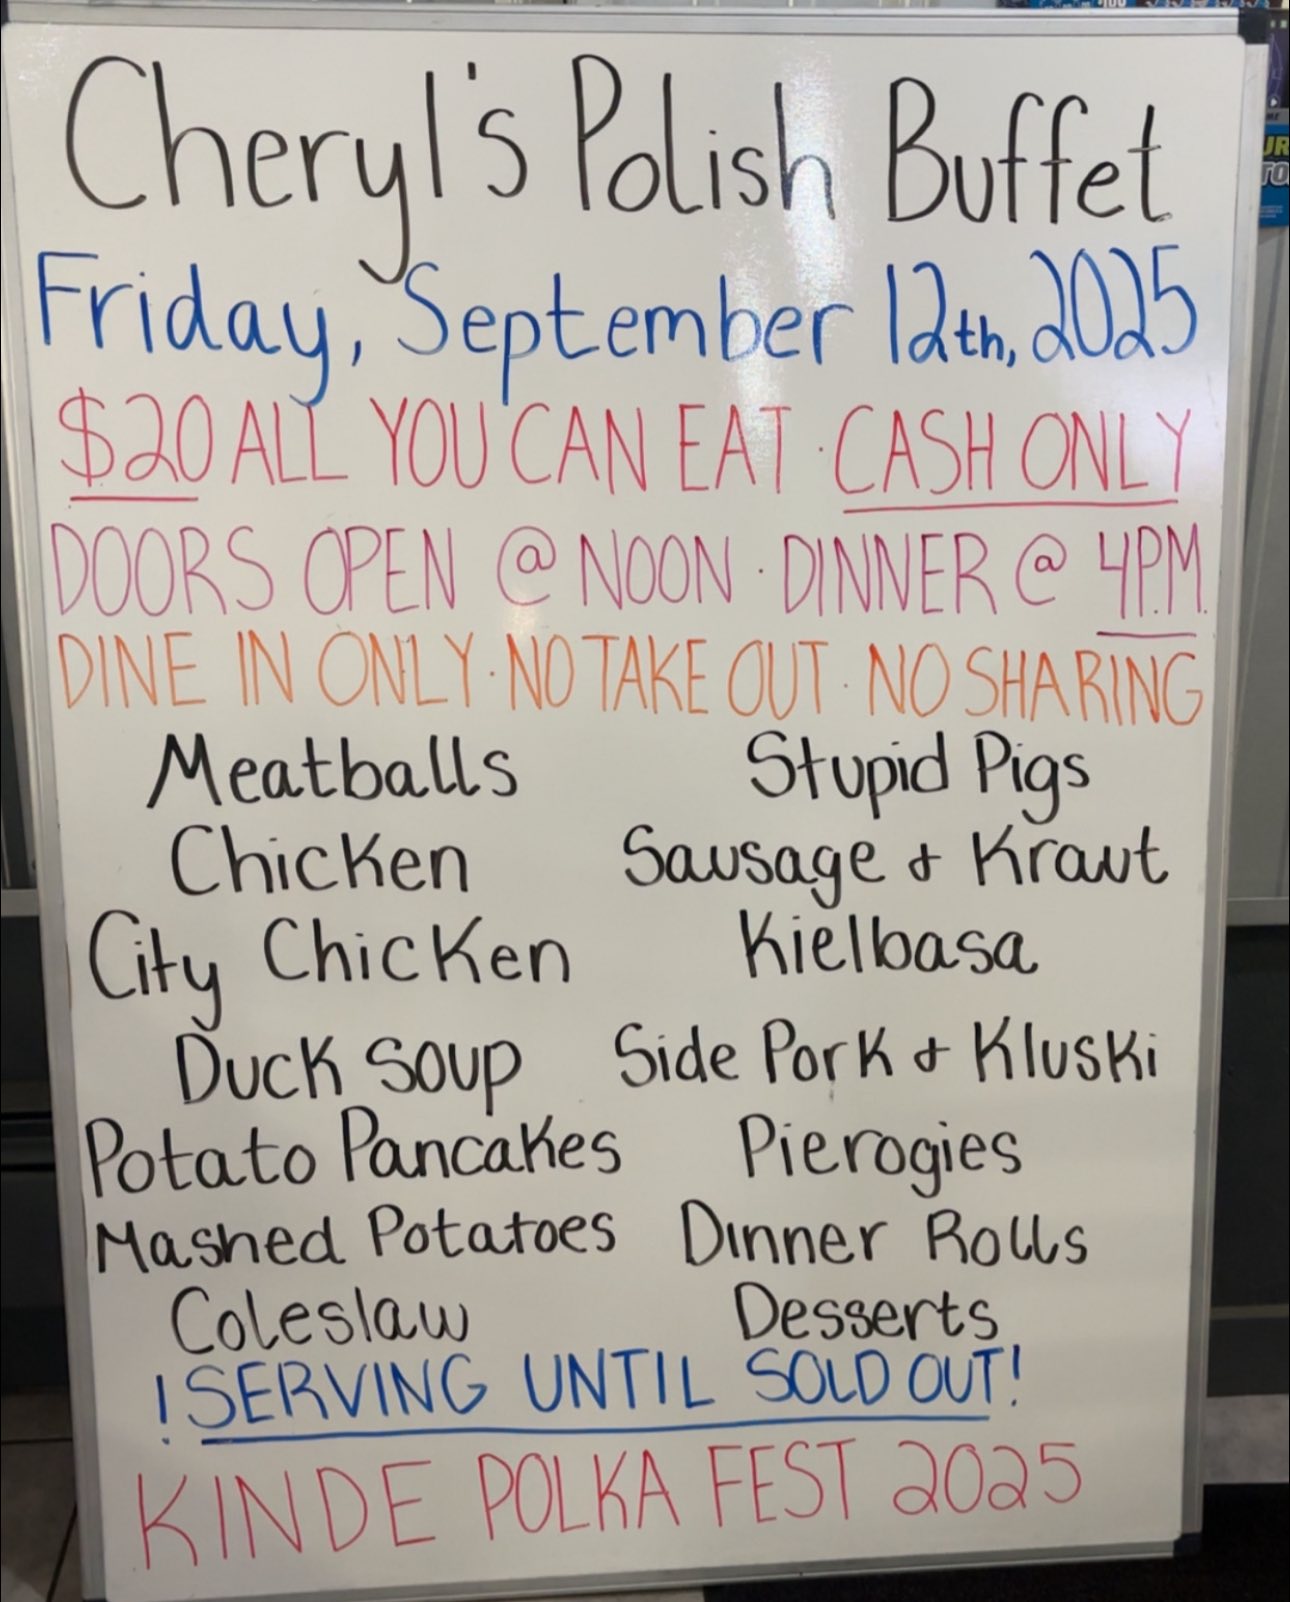 Cheryl's Polish Buffet
Friday, September 12th, 2025
$20 ALL YOU CAN EAT · CASH ONLY
DOORS OPEN @ NOON · DINNER @ 4P.M.
DINE IN ONLY · NO TAKE OUT · NO SHARING
Meatballs Stupid Pigs
Chicken Sausage & Kraut
City Chicken Kielbasa
Duck Soup Side Pork & Kluski
Potato Pancakes Pierogies
Mashed Potatoes Dinner Rolls
Coleslaw Desserts
! SERVING UNTIL SOLD OUT!
KINDE POLKA FEST 2025